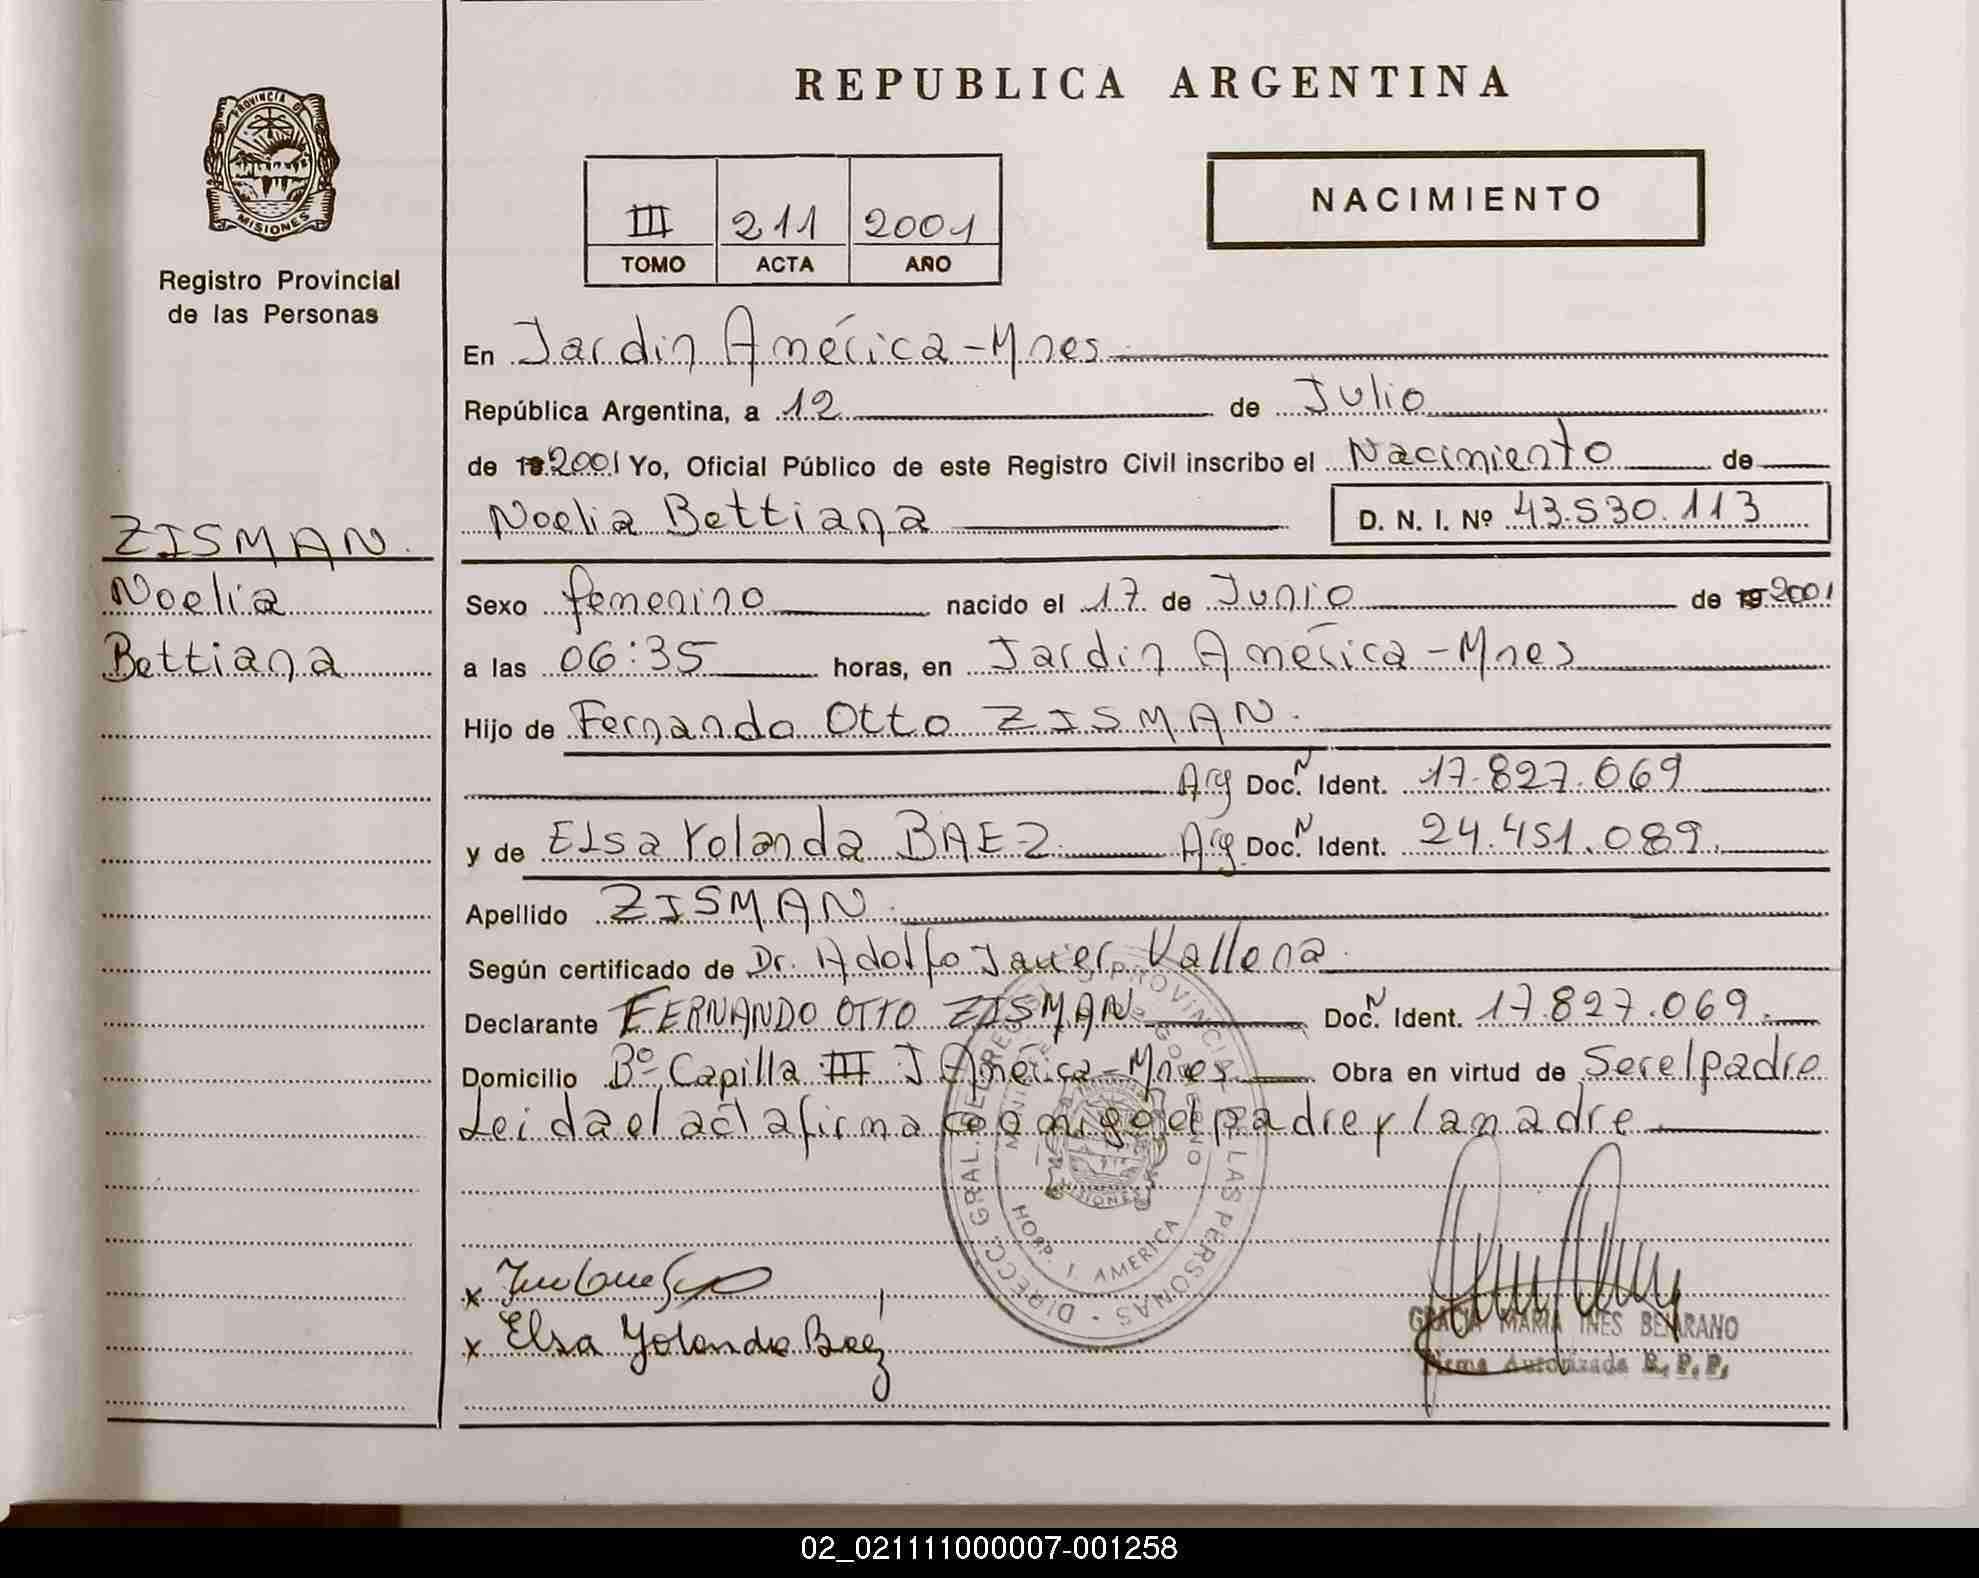 REPUBLICA ARGENTINA
PROVINCIA DE
MISIONES
Registro Provincial
de las Personas
NACIMIENTO
III 211 2001
TOMO ACTA AÑO
En Jardin América-Mnes
República Argentina, a 12 de Julio
de 2001 Yo, Oficial Público de este Registro Civil inscribo el Nacimiento de
Noelia Bettiana D. N. I. Nº 43.530.113
ZISMAN
Noelia
Bettiana
Sexo femenino nacido el 17 de Junio de 19 2001
a las 06:35 horas, en Jardin América-Mnes
Hijo de Fernando Otto ZISMAN
Arg Doc. N Ident. 17.827.069
y de Elsa Yolanda BAEZ Arg Doc. N Ident. 24.451.089
Apellido ZISMAN
Según certificado de Dr. Adolfo Javier
Declarante FERNANDO OTTO ZISMAN Doc. N Ident. 17.827.069
Domicilio Bº Capilla III J América-Mnes Obra en virtud de Ser el padre
Leida el acta firma conmigo el padre y la madre
DIRECC. GRAL. DEL REGISTRO PROVINCIAL DE LAS PERSONAS
AMERICA
MISIONES
x
x Elsa Yolanda Baez
GRACIA MARIA INES BEJARANO
Firma Autorizada R. P. P.
02_021111000007-001258